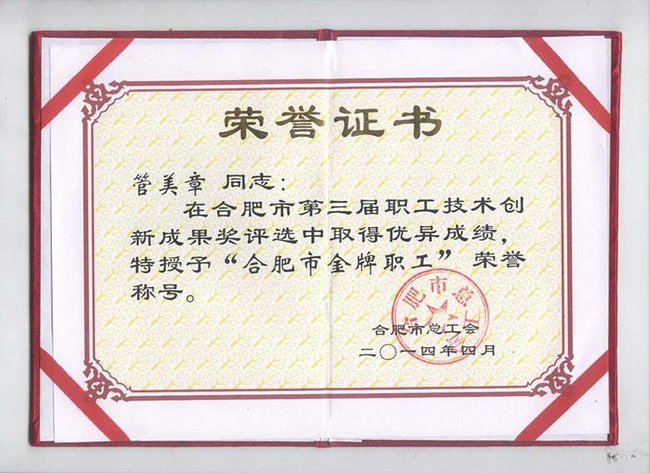 荣誉证书
管美章 同志：
在合肥市第三届职工技术创
新成果奖评选中取得优异成绩，
特授予“合肥市金牌职工” 荣誉
称号。
合肥市总工会
合肥市总工会
二〇一四年四月